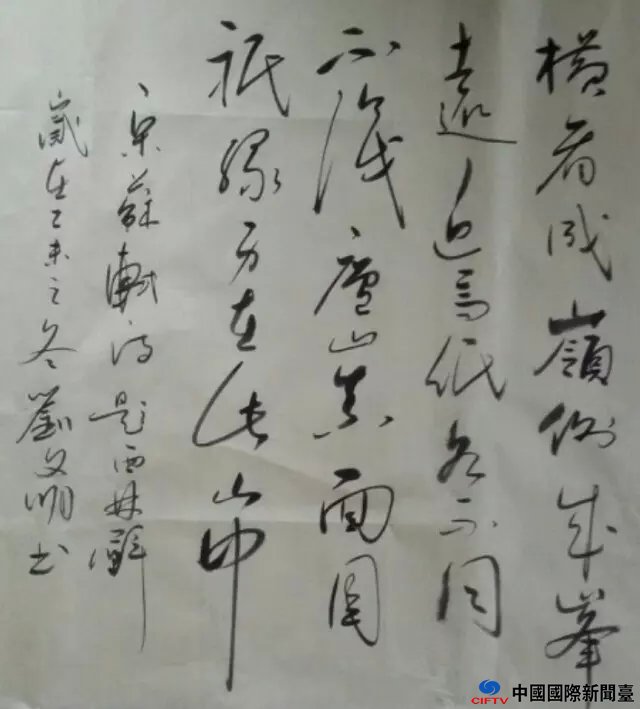 橫看成嶺側成峯
遠近高低各不同
不識廬山真面目
祇緣身在此山中
宋蘇軾詩題西林壁
歲在乙未之冬劉文明书
CIFTV 中國國際新聞臺